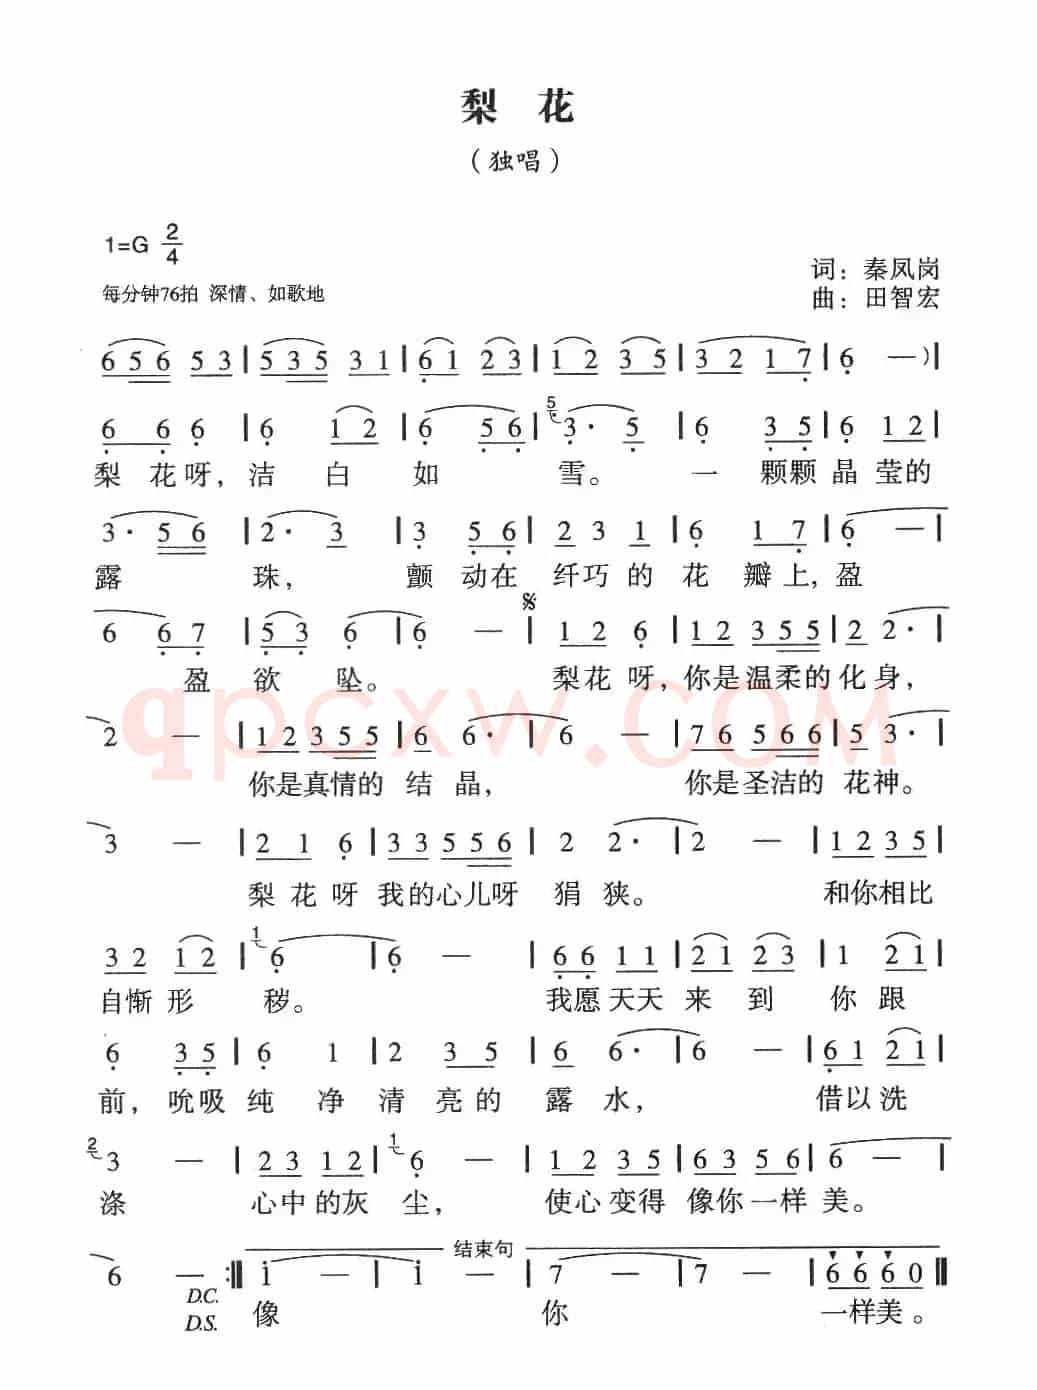 梨 花
（独唱）
1=G 2/4
词：秦凤岗
每分钟76拍 深情、如歌地
曲：田智宏
6 5 6 5 3 | 5 3 5 3 1 | 6 1 2 3 | 1 2 3 5 | 3 2 1 7 | 6 — ）|
6 6 6 | 6 1 2 | 6 5 6 | 5 3· 5 | 6 3 5 | 6 1 2 |
梨 花 呀， 洁 白 如 雪。 一 颗颗 晶 莹的
3· 5 6 | 2· 3 | 3 5 6 | 2 3 1 | 6 1 7 | 6 — |
露 珠， 颤 动在 纤巧 的 花 瓣上，盈
𝄋
6 6 7 | 5 3 6 | 6 — | 1 2 6 | 1 2 3 5 5 | 2 2· |
盈 欲 坠。 梨花 呀，你是温柔的化身，
qpcxw.COM
2 — | 1 2 3 5 5 | 6 6· | 6 — | 7 6 5 6 6 | 5 3· |
你是真情的 结 晶， 你是圣洁的 花神。
3 — | 2 1 6 | 3 3 5 5 6 | 2 2· | 2 — | 1 2 3 5 |
梨 花 呀 我的心儿呀 狷 狭。 和你相比
3 2 1 2 | 1 6 | 6 — | 6 6 1 1 | 2 1 2 3 | 1 2 1 |
自惭 形 秽。 我愿天天 来 到 你 跟
6 3 5 | 6 1 | 2 3 5 | 6 6· | 6 — | 6 1 2 1 |
前，吮吸 纯 净 清 亮的 露 水， 借以洗
2 3 — | 2 3 1 2 | 1 6 — | 1 2 3 5 | 6 3 5 6 | 6 — |
涤 心中的灰 尘， 使心变得 像你一样 美。
结束句
6 — :‖ i — | i — | 7 — | 7 — | 6 6 6 0 ‖
D.C.
D.S.
像 你 一样美。